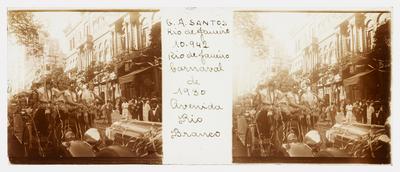 G. A. SANTOS
Rio de Janeiro
10.942
Rio de Janeiro
Carnaval
de
1930
Avenida
Rio
Branco